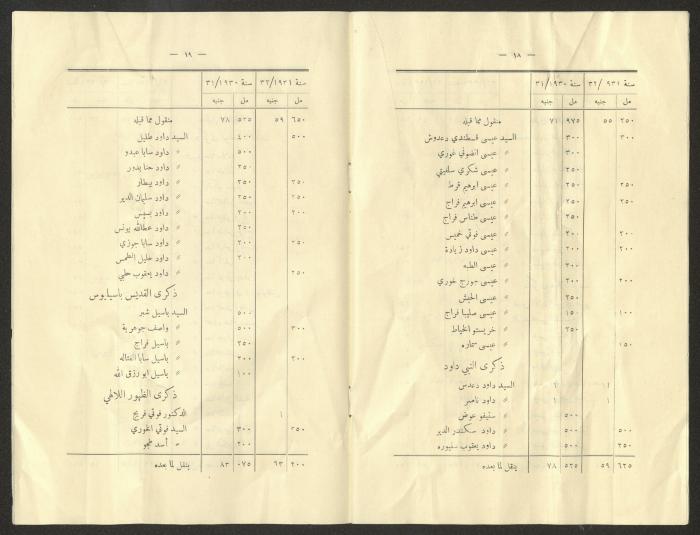 — ١٨ —
سنة ٩٣١ /٣٢ سنة ٣١/١٩٣٠
مل جنيه مل جنيه
٢٥٠ ٥٥ ٩٧٥ ٧١ منقول مما قبله
٣٠٠ ٣٠٠ السيد عيسى قسطندي دعدوش
٣٠٠ » عيسى انضوني خوري
٢٥٠ » عيسى شكري سلفيتي
٢٥٠ ٢٥٠ » عيسى ابرهيم قرط
٢٥٠ ٢٥٠ » عيسى ابرهيم فراج
٢٥٠ » عيسى طناس فراج
٢٠٠ ٣٠٠ » عيسى فوتي خميس
٢٠٠ ٢٠٠ » عيسى داود زيادة
٣٠٠ » عيسى الطبه
٢٠٠ ٢٠٠ » عيسى جورج خوري
٢٥٠ » عيسى الحبش
١٠٠ ١٥٠ » عيسى صليبا فراج
٢٥٠ » خريستو الخياط
١٥٠ » عيسى سماره
ذكرى النبي داود
١ ١ السيد داود دعدس
١ ١ » داود ناصر
٥٠٠ » سليفو عوض
٥٠٠ ٥٠٠ » داود سكندر الدير
٢٥٠ ٥٠٠ » داود يعقوب سنيوره
٦٢٥ ٥٩ ٥٢٥ ٧٨ ينقل لما بعده
— ١٩ —
سنة ٣٢/١٩٣١ سنة ٣١/١٩٣٠
مل جنيه مل جنيه
٦٥٠ ٥٩ ٥٢٥ ٧٨ منقول مما قبله
٥٠٠ ٤٠٠ السيد داود طليل
٥٠٠ » داود سابا عبدو
٢٥٠ » داود حنا بدور
٢٥٠ ٢٥٠ » داود بيطار
٢٥٠ ٢٥٠ » داود سليمان الدير
٢٠٠ ٢٠٠ » داود بسيس
٢٥٠ » داود عطالله يونس
٢٥٠ ٢٠٠ » داود سابا جوزي
٢٠٠ » داود خليل الطمس
٢٥٠ » داود يعقوب حلبي
ذكرى القديس باسيليوس
٥٠٠ السيد باسيل شبر
٣٠٠ ٥٠٠ » واصف جوهرية
٢٥٠ » باسيل فراج
٢٠٠ ٣٠٠ » باسيل سابا الفتاله
١٠٠ » باسيل ابو رزق الله
ذكرى الظهور اللالهي
١ الدكتور فوتي فريج
٢٥٠ ٣٠٠ السيد فوتي الخوري
٢٠٠ » أسد طبجو
٢٠٠ ٦٣ ٠٧٥ ٨٣ ينقل لما بعده